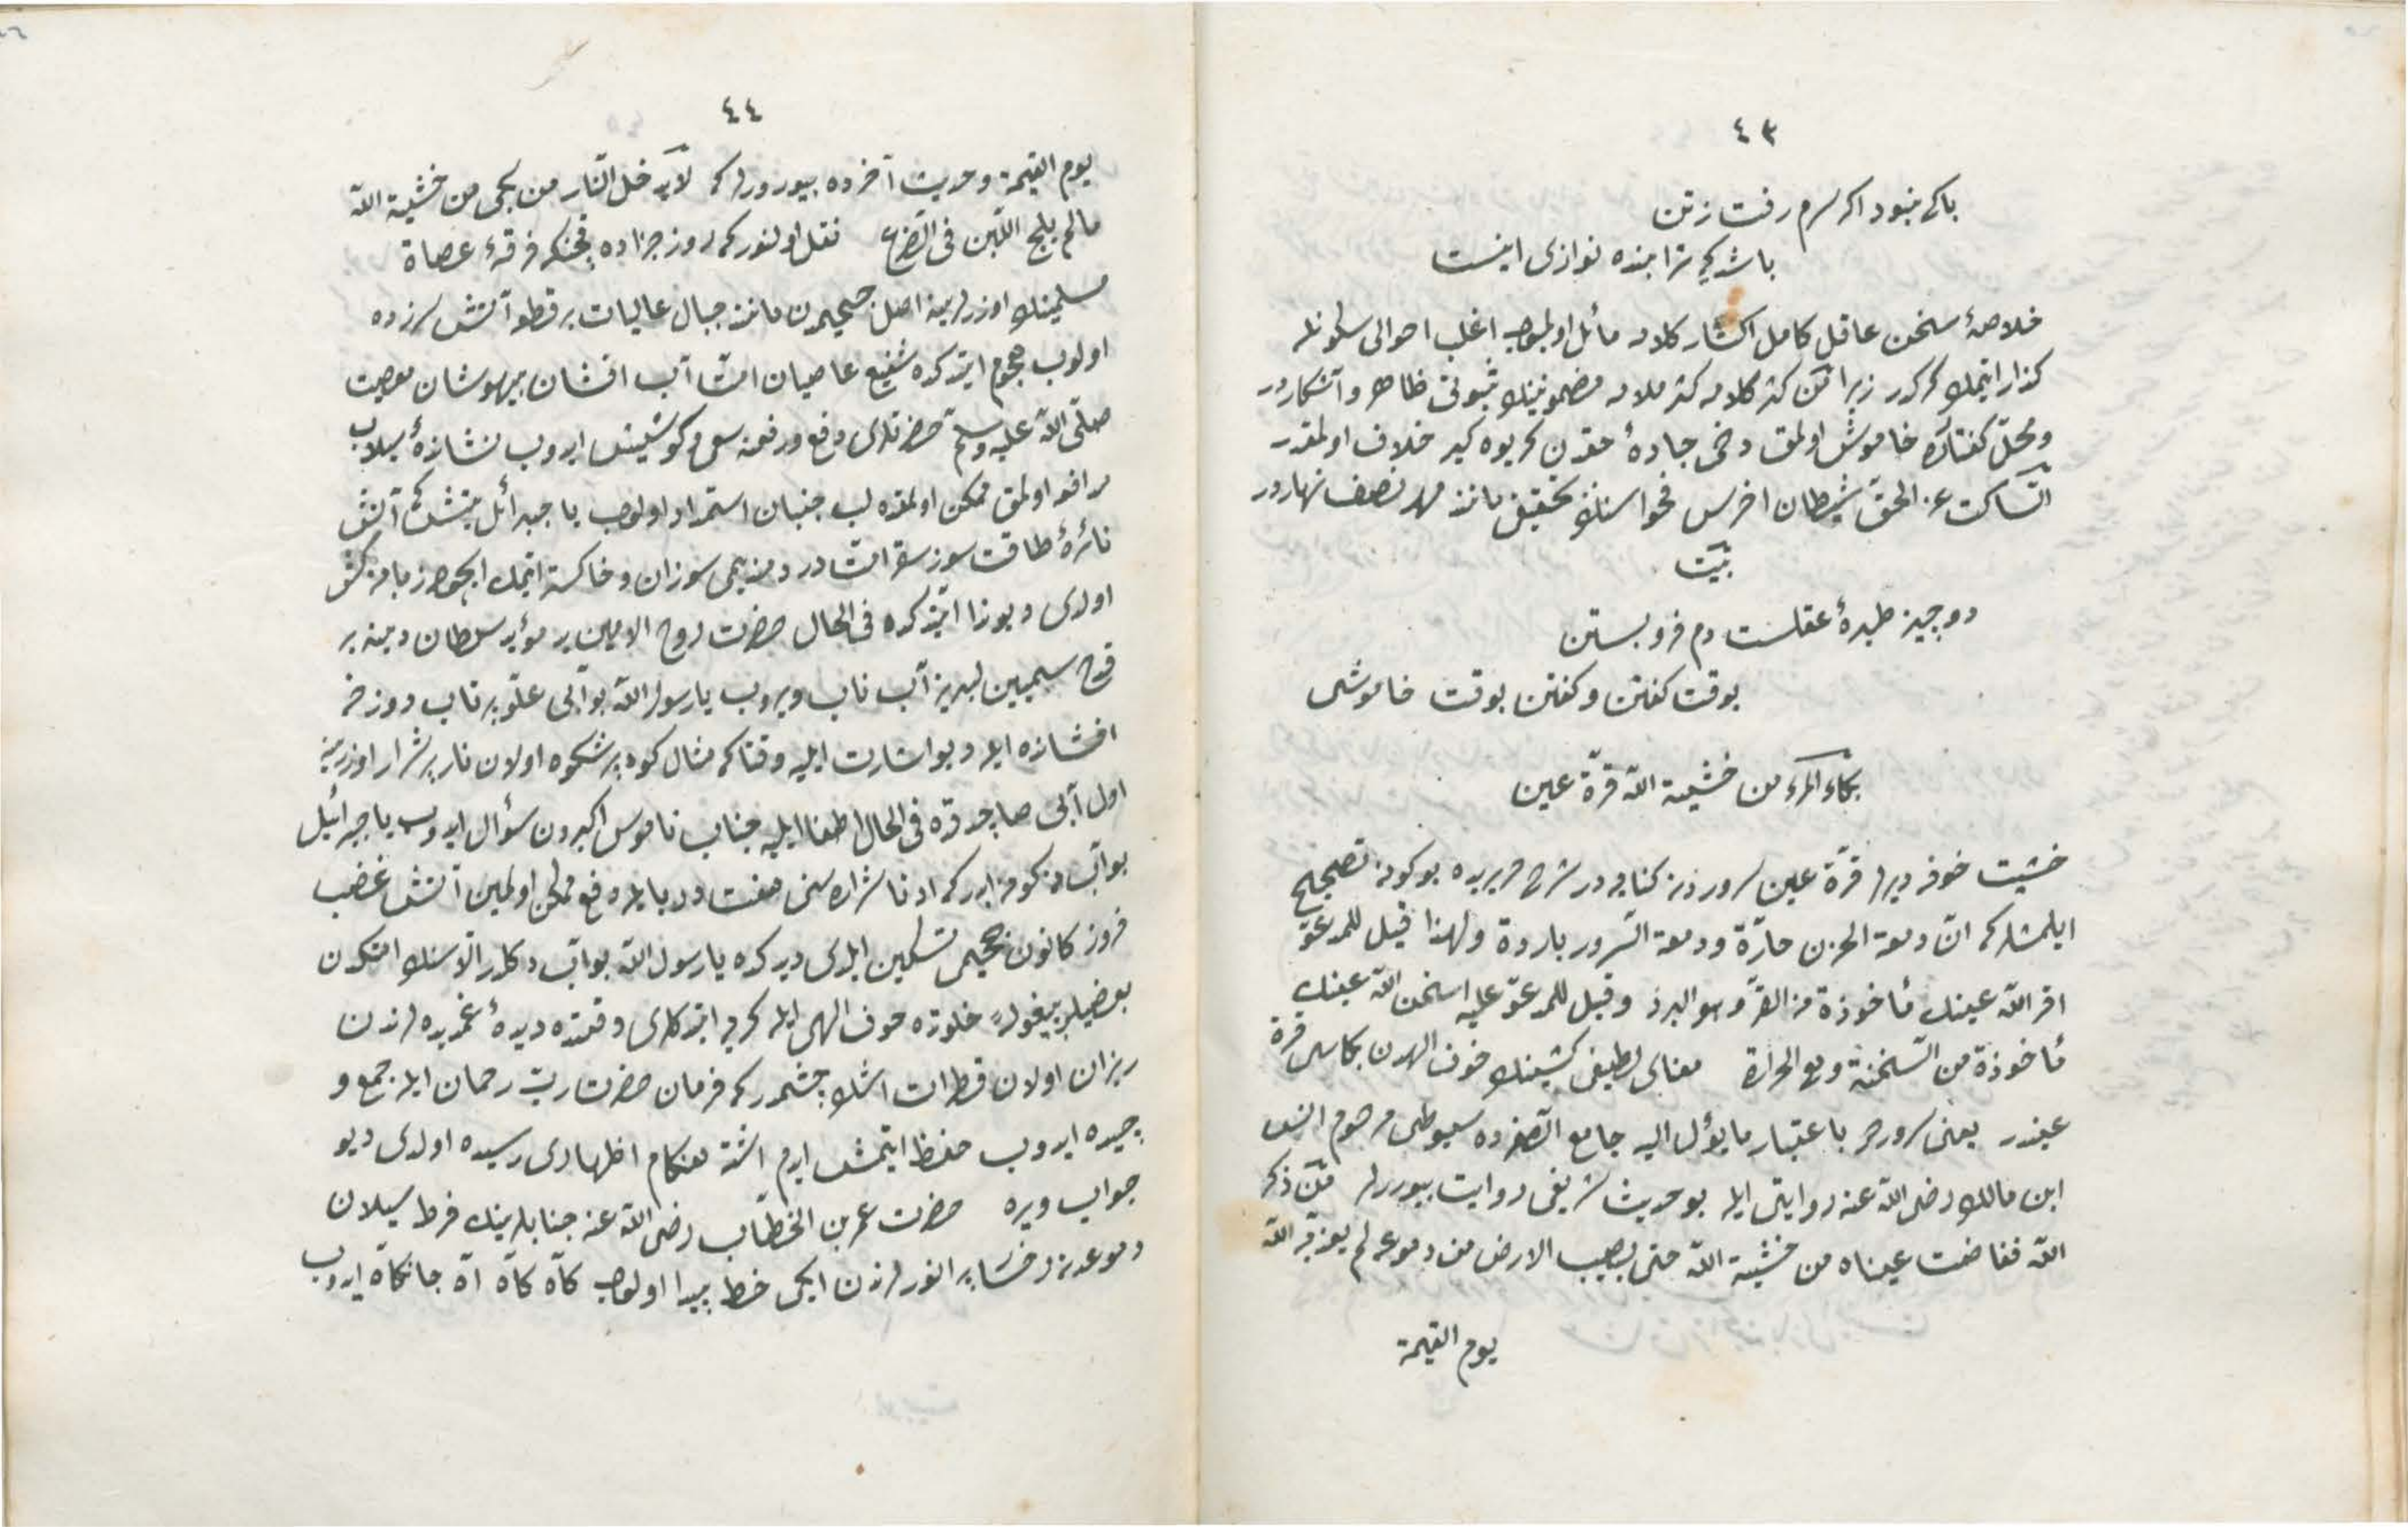 ٤٣
باكی نبود اكر سرم رفت ز تن
باشد كه ترا بنده نوازی اینست
خلاصهٔ سخن عاقل كامل اكثار كلامه مائل اولمیوب اغلب احوالی سكوتله
كذار ایتمك كركدر زیرا من كثر كلامه كثر ملامه مضموننك ثبوتی ظاهر و آشكاردر
و محلّ كفتارده خاموش اولمق دخی جادهٔ حقدن كریوه كیر خلاف اولمقدر
السّاكت عن الحقّ شیطان اخرس فحواسنك تحقیقی مانند مهر نصف نهاردر
بیت
دو چیز طیرهٔ عقلست دم فرو بستن
بوقت كفتن و كفتن بوقت خاموشی
بكاء المرء من خشیة اللّه قرّة عین
خشیت خوفه دیرلر قرّة عین سروردن كنایه در شرح مریریده بوكونه تصحیح
ایلمشلر كه انّ دمعة الحزن حارّة ودمعة السّرور باردة ولهذا قیل للمدعوّ
اقر اللّه عینك مأخوذة من القرّ وهو البرد وقیل للمدعوّ علیه اسخن اللّه عینك
مأخوذة من السّخنة وهی الحرارة معنای لطیفی كشینك خوف الهدن بكاسی قرة
عیندر یعنی سروردر باعتبار ما یؤل الیه جامع الصّغیرده سیوطی مرحوم انس
ابن مالك رضی اللّه عنه روایتی ایله بو حدیث شریفی روایت بیوررلر من ذكر
اللّه ففاضت عیناه من خشیة اللّه حتی یصیب الارض من دموعه لم یعذّبه اللّه
یوم القیمة
٤٤
یوم القیمة وحدیث آخرده بیوررلر كه لا یدخل النّار من بكی من خشیة اللّه
مالم یلج اللّبن فی الضّرع نقل اولنور كه روز جزاده فرقهٔ عصاة
مسلمینك اوزرلرینه اصل جحیمدن مانند جبال عالیات بر قطعه آتش سرزده
اولوب هجوم ایتدكده شفیع عاصیان امّت آب افشان بیهوشان معصیت
صلّی اللّه علیه وسلّم حضرتلری دفع ورفعنه سعی و كوشش ایدوب نشاندهٔ سیلاب
مرافعه اولمق ممكن اولمغله لب جنبان استمداد اولوب یا جبرائیل آتش
نائرهٔ طاقت سوز سقر امّت دردمندیمی سوزان و خاكستر ایتمك ایچون زبانه كش
اولدی دیو ندا ایتدكده فی الحال حضرت روح الامین بر مؤید سلطان دینه بر
قدح سیمین لبریز آب ناب ویروب یا رسول اللّه بو آبی علو پرتاب دوزخه
افشانده ایله دیو اشارت ایلیه وقتا كه مثال كوه پرشكوه اولان نار پرشرار اوزرینه
اول آبی صاچدقده فی الحال اطفا ایلیه جناب ناموس اكبردن سؤال ایدوب یا جبرائیل
بو آب نه كونه ابدر كه ادنا شراره سنی هفت دریا ایله دفع ممكن اولمین آتش غضب
فروز كانون جحیمی تسكین ایلدی دیدكده یا رسول اللّه بو آب دكلدر الّا سنك امّتكدن
بعضیلری بیغوله خلوتده خوف الهی ایله كریه ایتدكلری وقتده دیدهٔ غمدیده لرندن
ریزان اولان قطرات اشك چشمدر كه فرمان حضرت ربّ رحمان ایله جمع و
چیده ایدوب حفظ ایتمش ایدم اشته هنكام اظهاری رسیده اولدی دیو
جواب ویره حضرت عمر بن الخطّاب رضی اللّه عنه جنابلرینك فرط سیلان
دموعدن رخسار پر انورلرنده ایكی خط پیدا اولوب كاه كاه آه جانكاه ایدوب